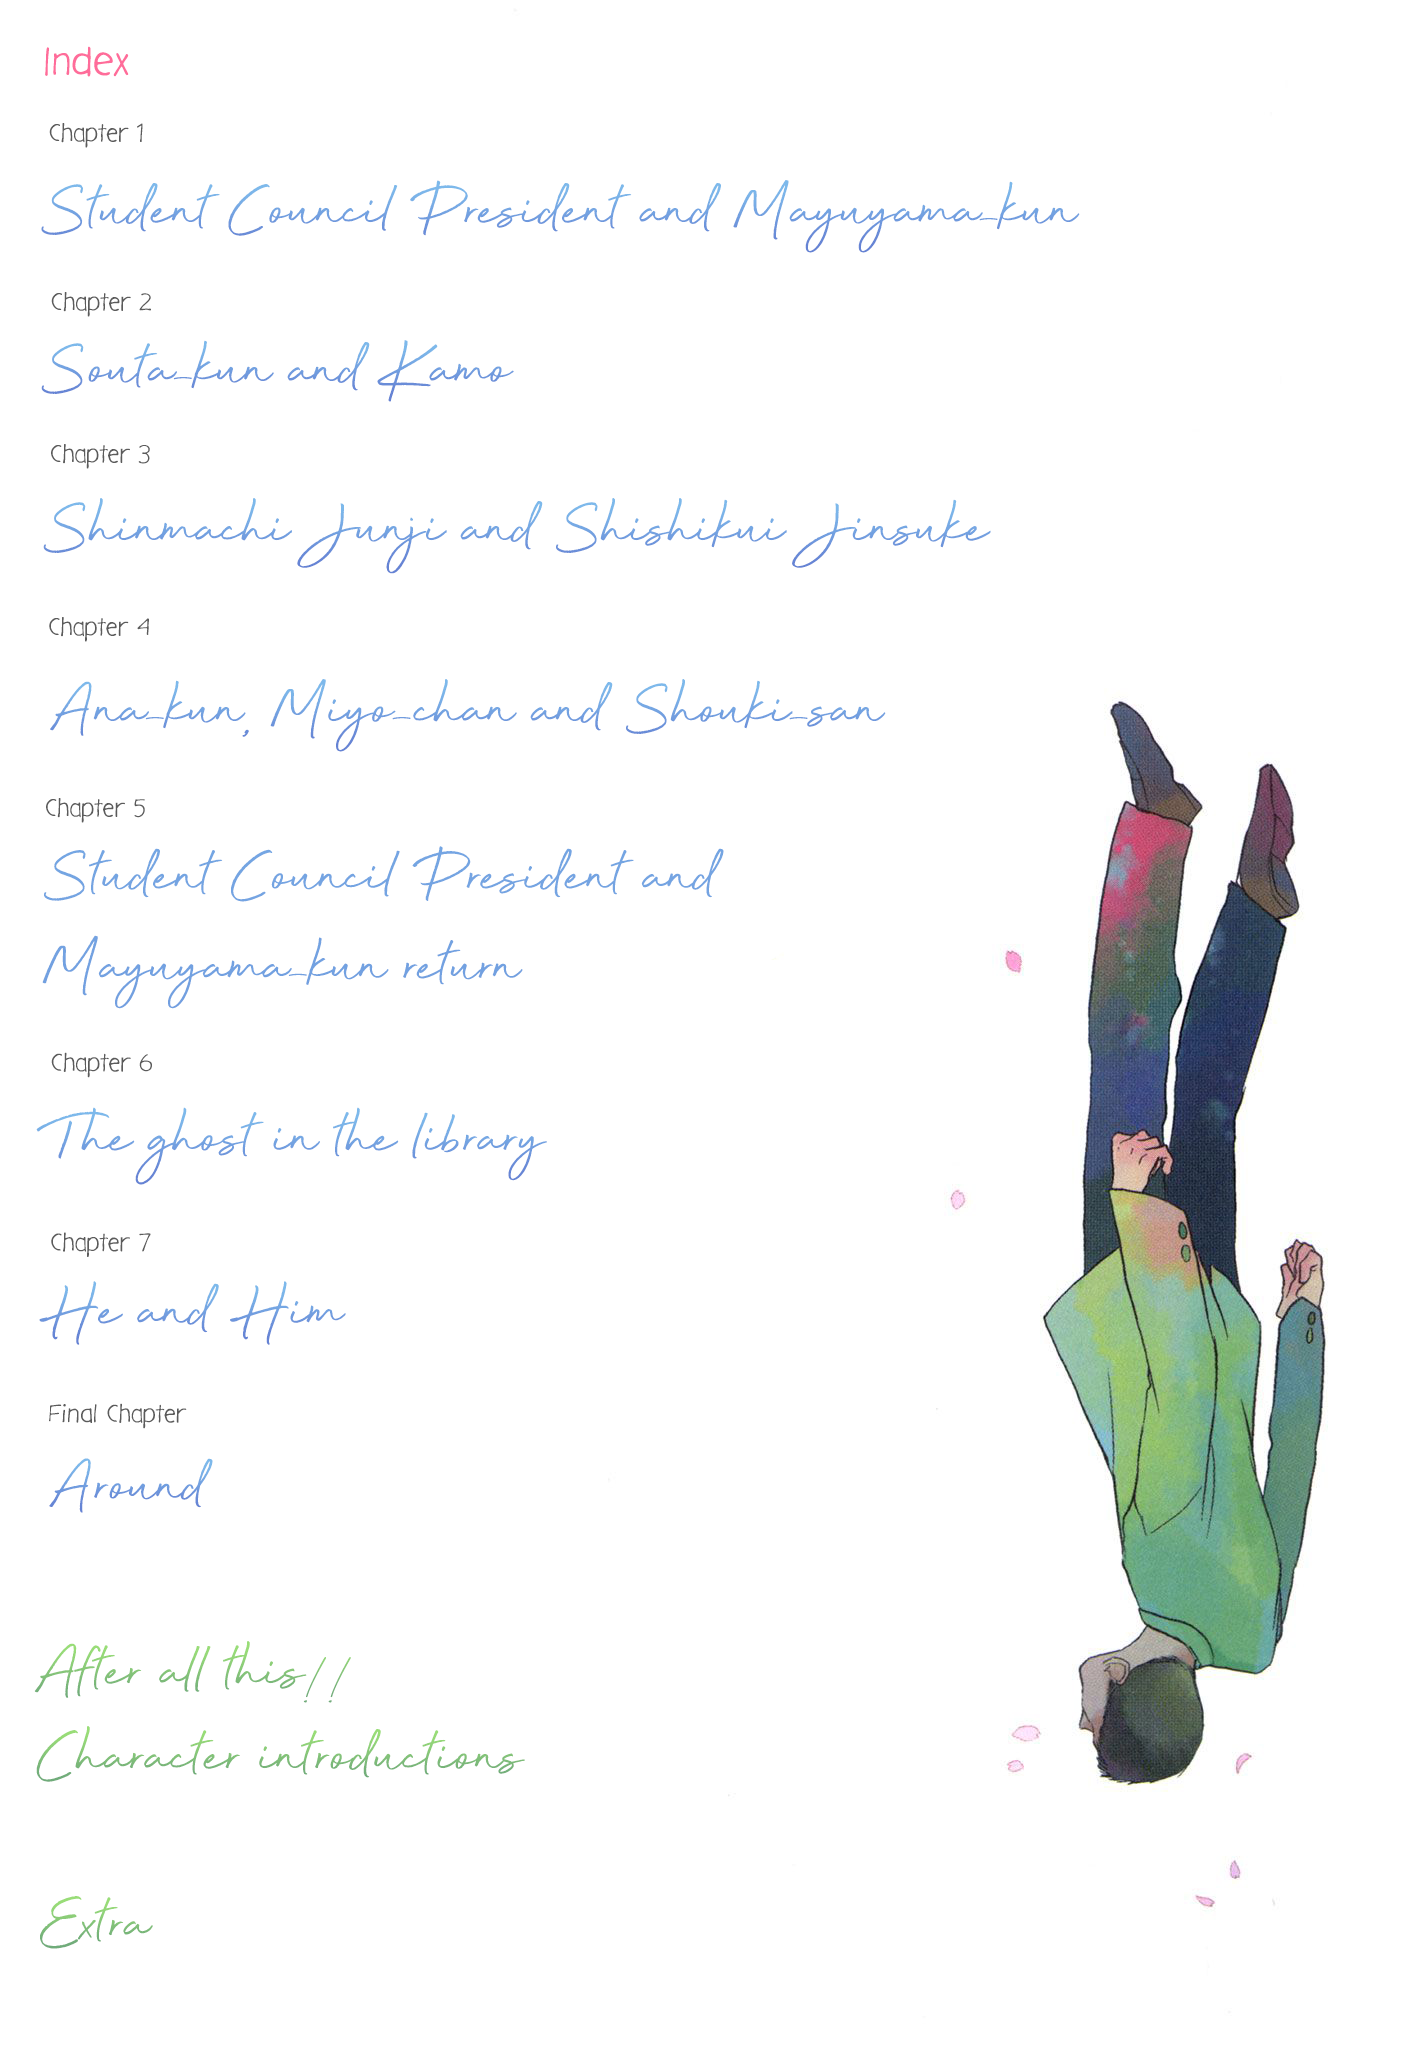 Index
Chapter 1
Student Council President and Mayuyama-kun
Chapter 2
Souta-kun and Kamo
Chapter 3
Shinmachi Junji and Shishikui Jinsuke
Chapter 4
Ana-kun, Miyo-chan and Shouki-san
Chapter 5
Student Council President and
Mayuyama-kun return
Chapter 6
The ghost in the library
Chapter 7
He and Him
Final Chapter
Around
After all this!!
Character introductions
Extra